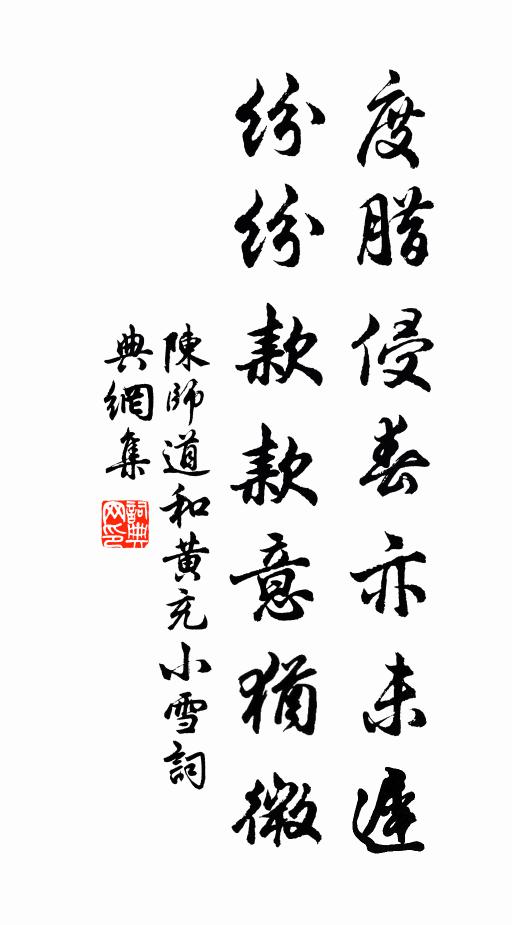 度腊侵春亦未遲
紛紛款款意猶微
陳師道和黄充小雪詞
典網集
詞典網印